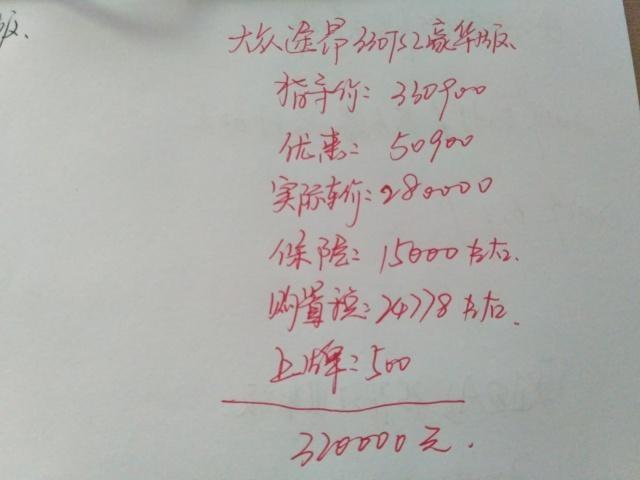 版、
大众途昂330TSI豪华版、
指导价：330900
优惠：50900
实际车价：280000
保险：15000左右.
购置税：24778左右.
上牌：500
320000元.